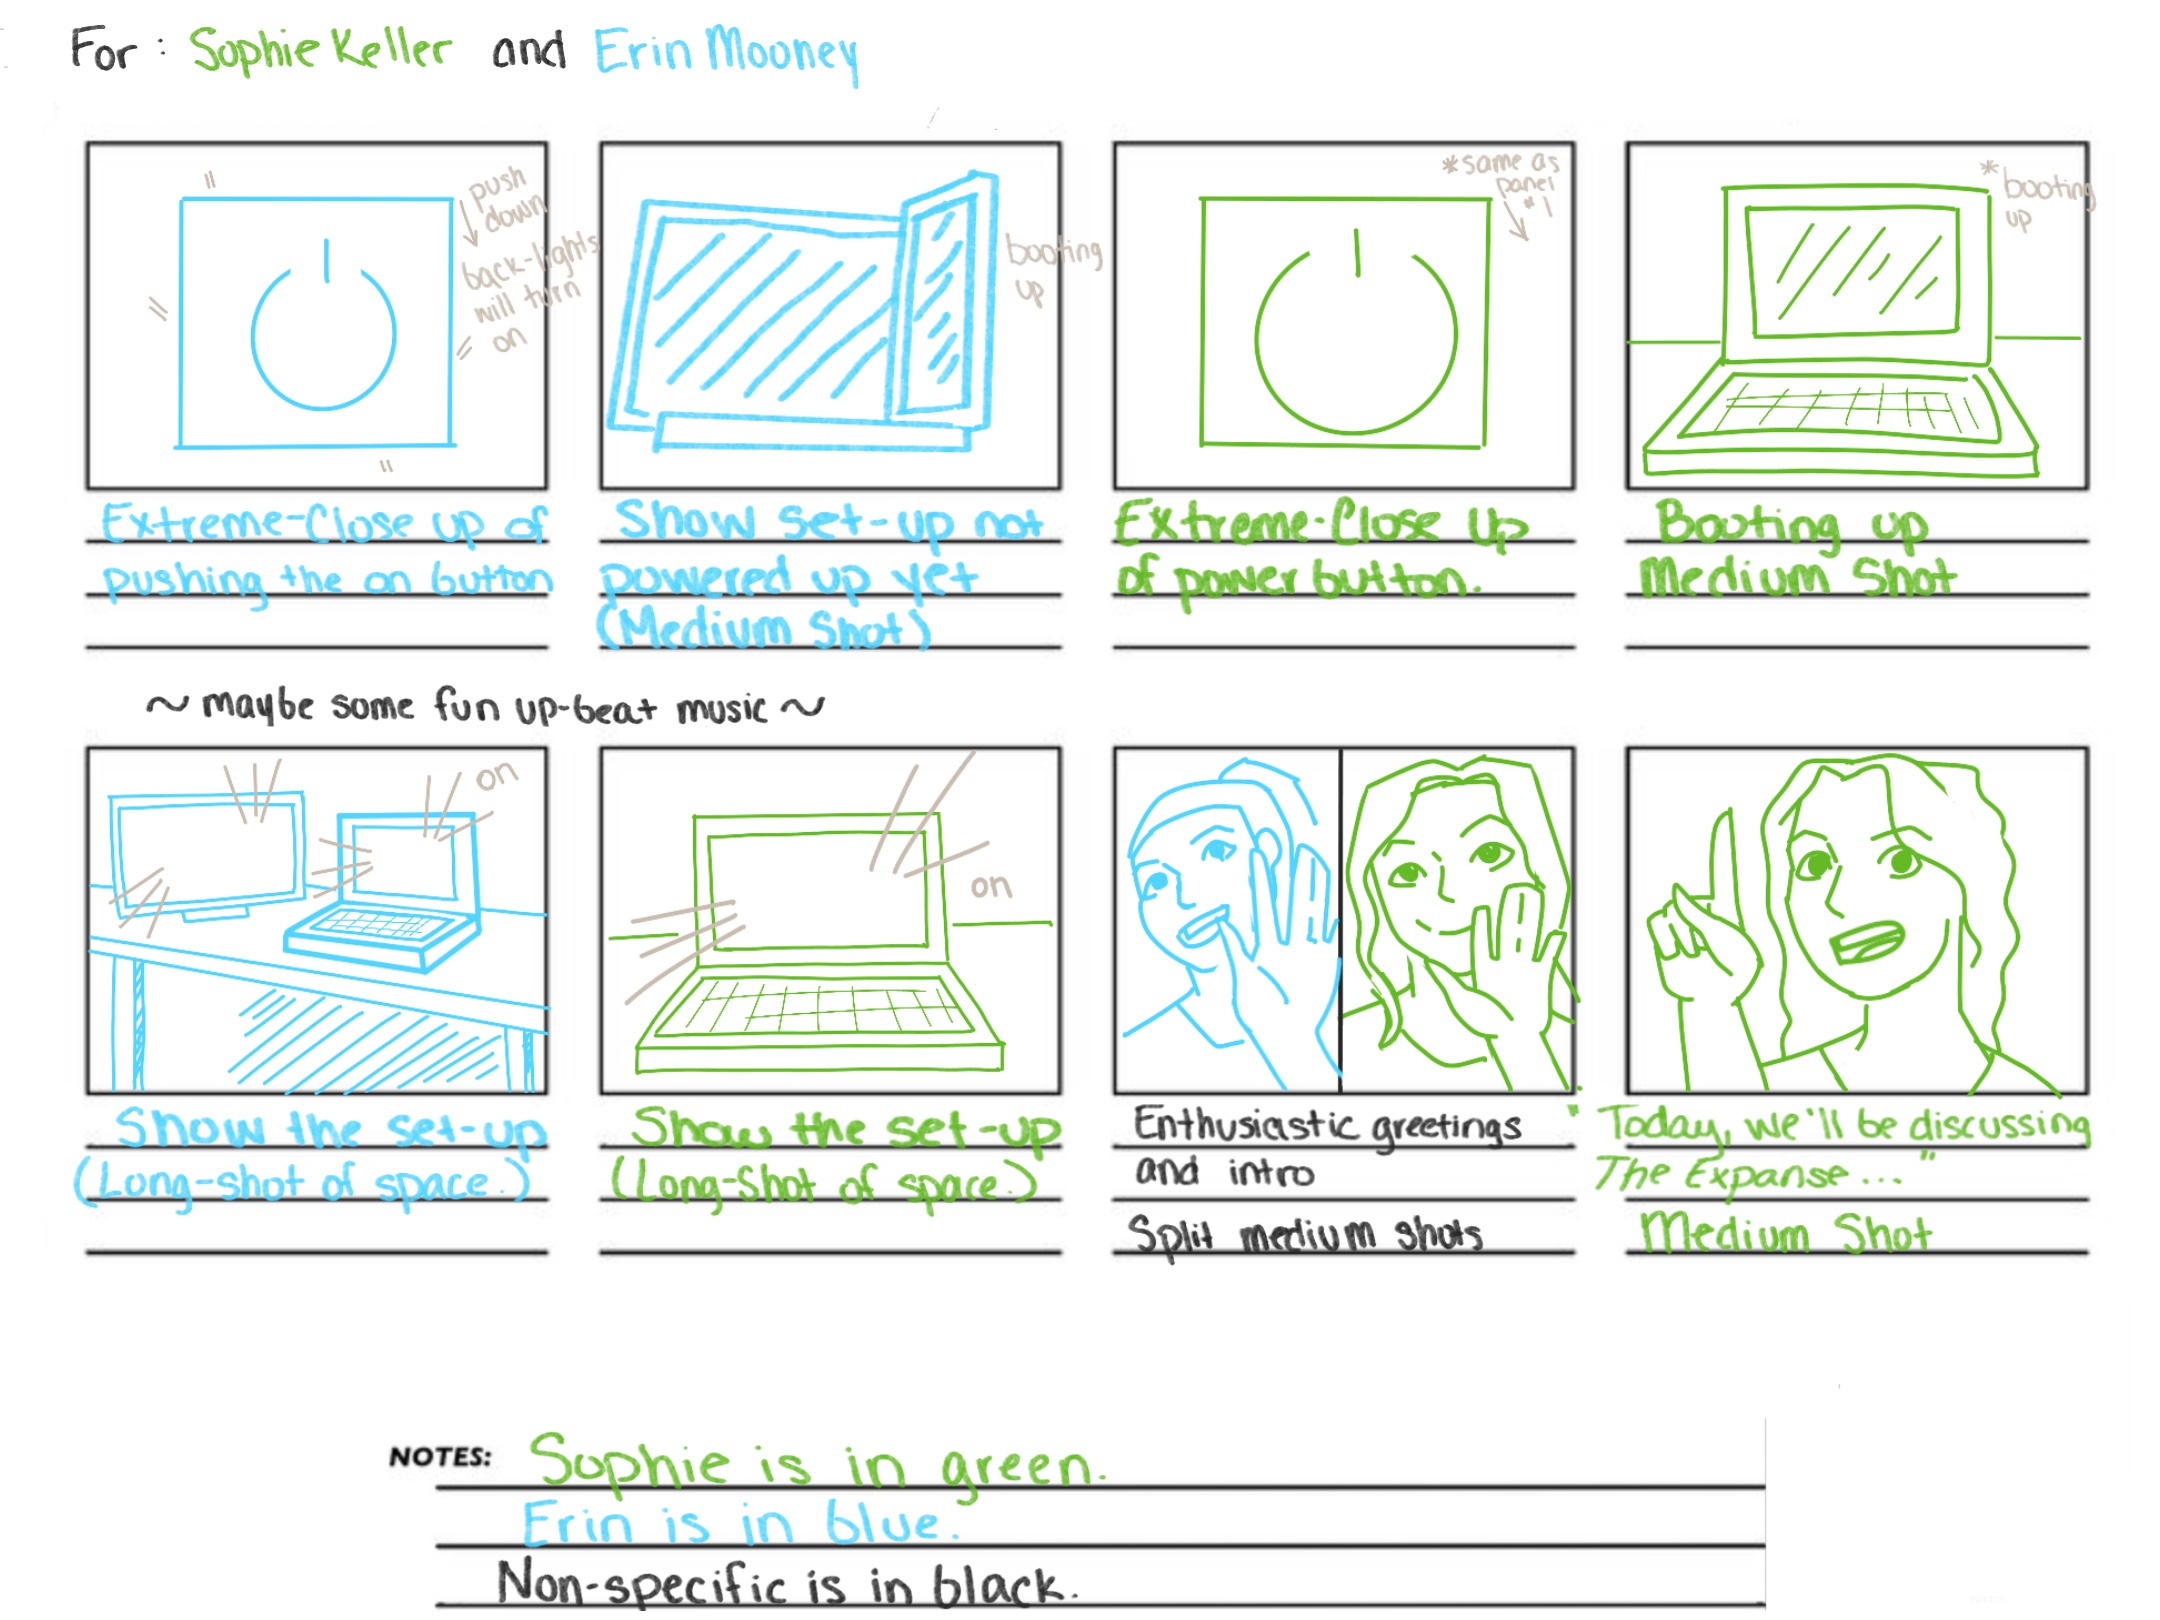 For : Sophie Keller and Erin Mooney
push
down
back-lights
will turn
on
booting
up
*same as
panel
#1
*booting
up
Extreme-Close up of
pushing the on button
Show set-up not
powered up yet
(Medium Shot)
Extreme-Close Up
of power button.
Booting up
Medium Shot
~ maybe some fun up-beat music ~
on
on
Show the set-up
(Long-shot of space.)
Show the set-up
(Long-Shot of space.)
Enthusiastic greetings
and intro
Split medium shots
"Today, we'll be discussing
The Expanse..."
Medium Shot
NOTES: Sophie is in green.
Erin is in blue.
Non-specific is in black.